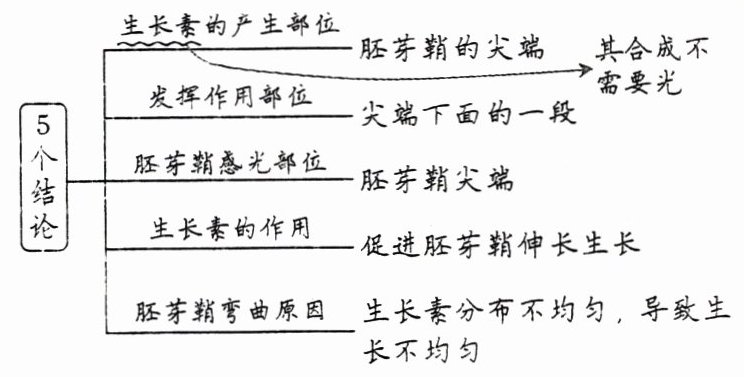 5个结论
生长素的产生部位
胚芽鞘的尖端
其合成不
需要光
发挥作用部位
尖端下面的一段
胚芽鞘感光部位
胚芽鞘尖端
生长素的作用
促进胚芽鞘伸长生长
胚芽鞘弯曲原因
生长素分布不均匀，导致生
长不均匀